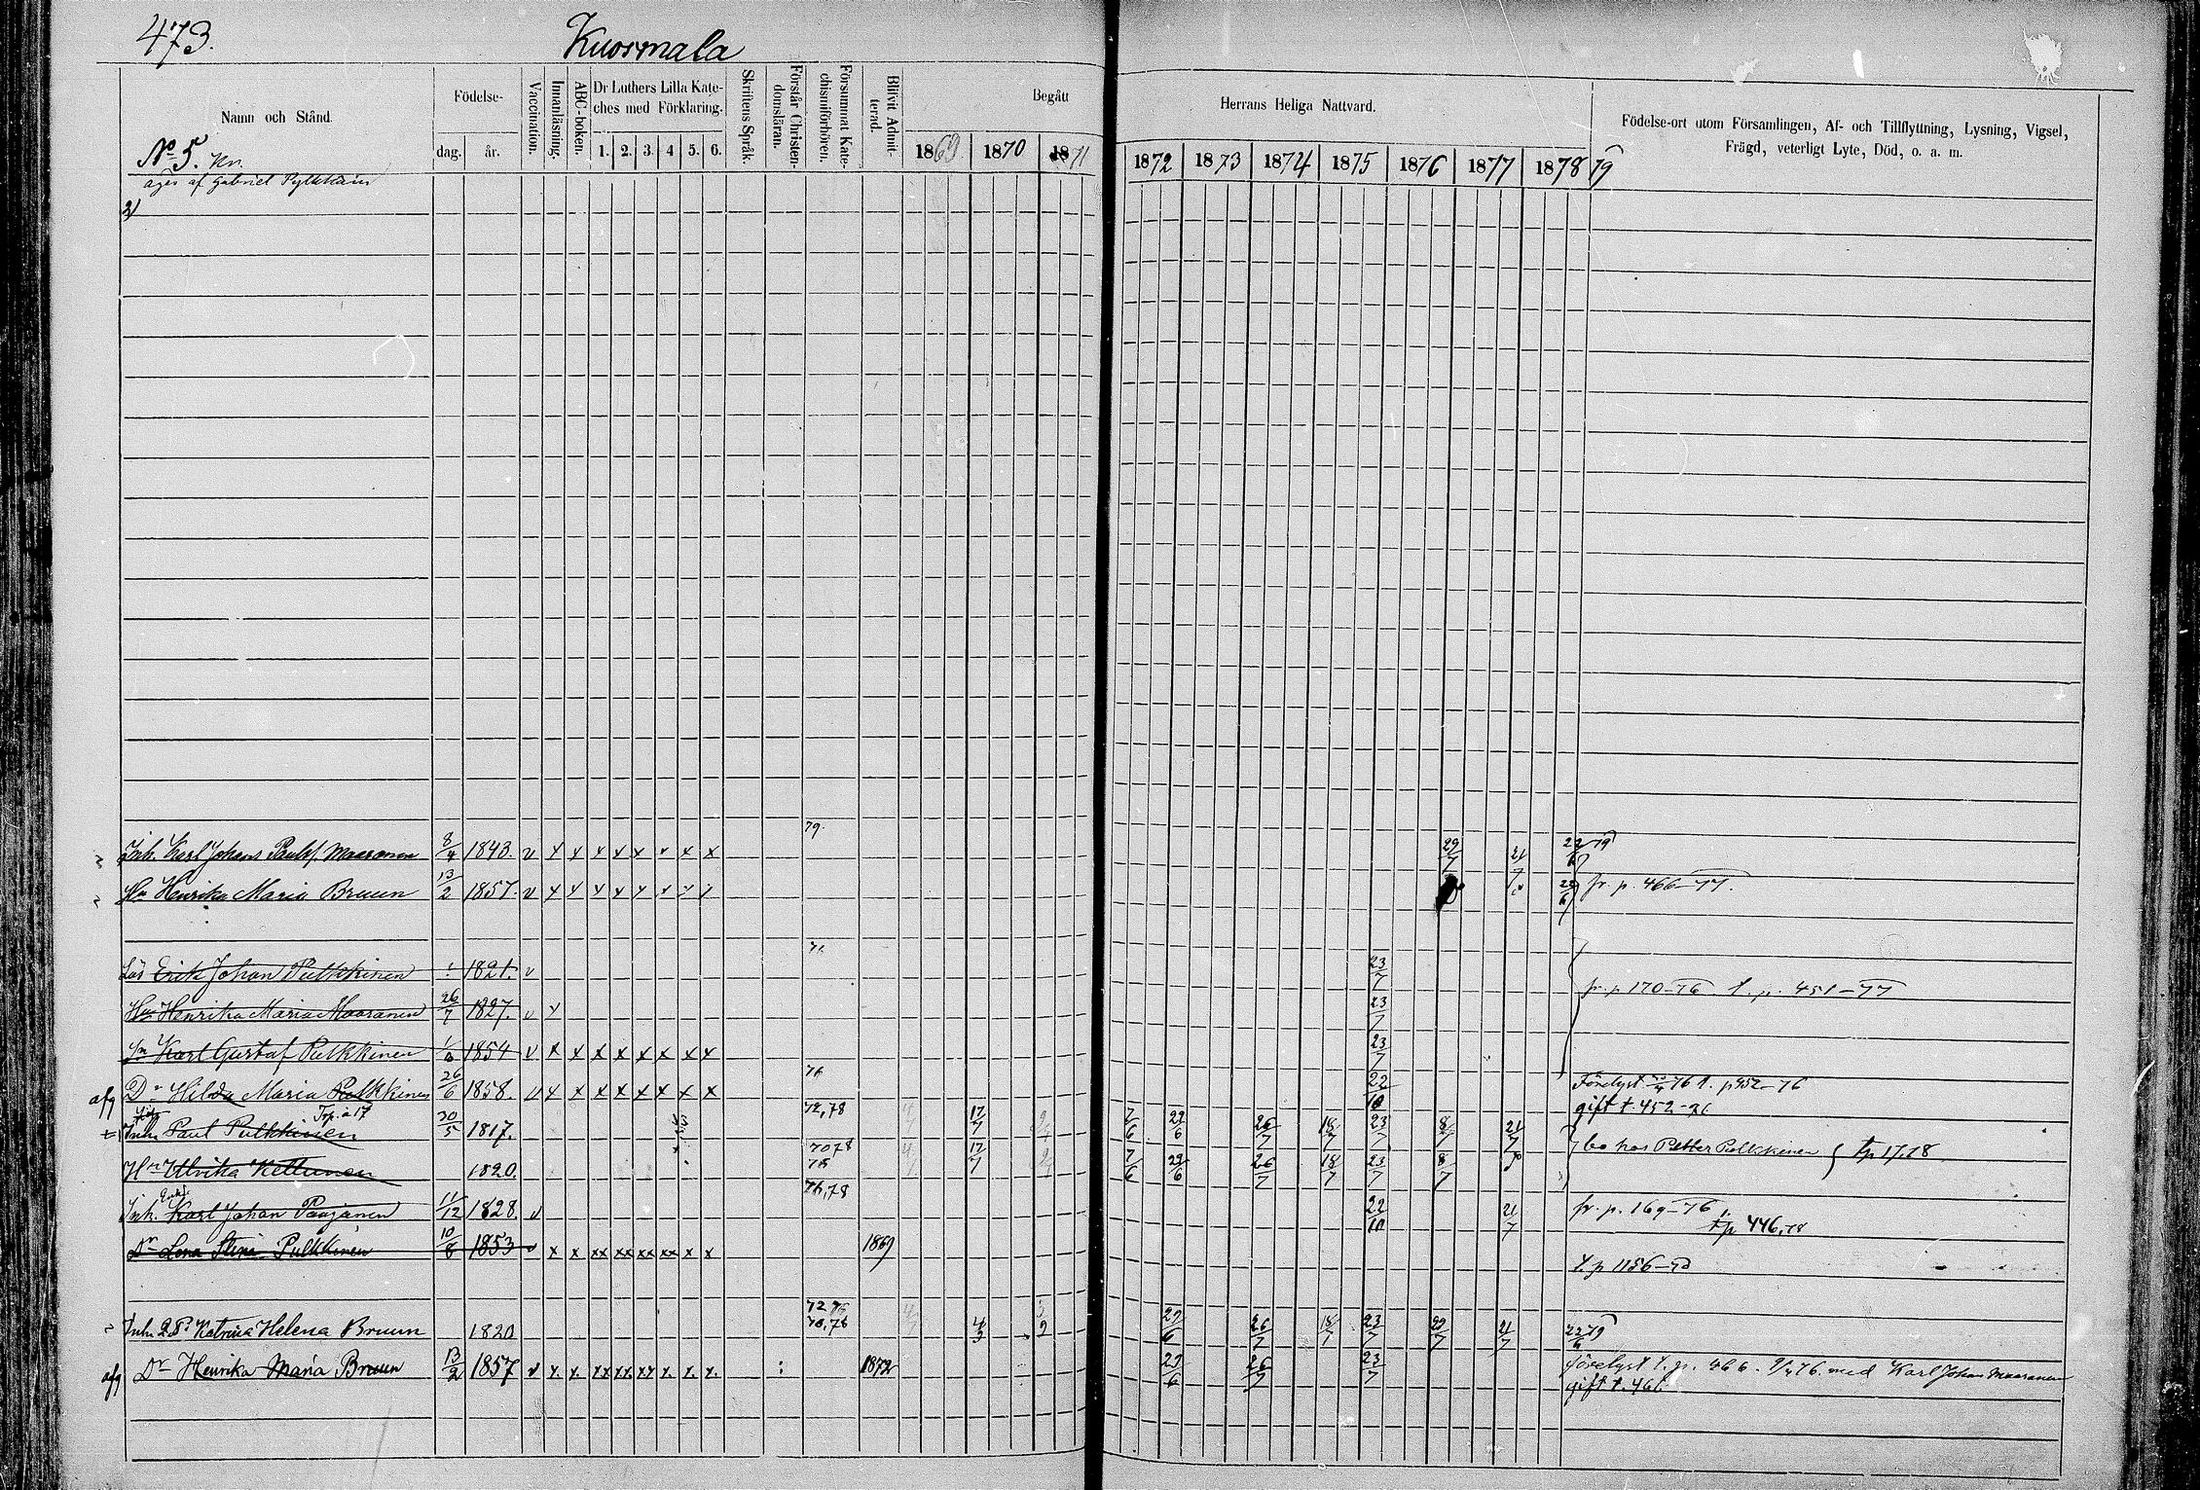 473.
Kuosmala
Namn och Stånd.
Födelse-
dag. år.
Vaccination.
Innanläsning.
ABC-boken.
Dr Luthers Lilla Kate-
ches med Förklaring.
1. 2. 3. 4 5. 6.
Skriftens Språk.
Förstår Christen-
domsläran.
Försummat Kate-
chismiförhören.
Blifvit Admit-
terad.
Begått
1869 1870 1871
Herrans Heliga Nattvard.
1872 1873 1874 1875 1876 1877 1878 79
Födelse-ort utom Församlingen, Af- och Tillflyttning, Lysning, Vigsel,
Frägd, veterligt Lyte, Död, o. a. m.
No 5. Kr.
äges af Gabriel Pylkkäin
79.
Inh. Karl Johan Paulss. Maaranen 8/4 1843. v x x x x x x x x 29/7 21/7 22/6 79
Hu Henrika Maria Bruun 13/2 1857. v x x x x x x x x 22/6 fr. p. 466–77.
Lös Erik Johan Pulkkinen 1821. v 23/7
Hu Henrika Maria Maaranen 26/7 1827. v x 23/7 fr. p 170–76 t. p. 451–77
Sn Karl Gustaf Pulkkinen 1854 v x x x x x x x x 23/7
afg Dr Hilda Maria Pulkkinen 26/6 1858. v x x x x x x x x 76 22/10 Förelyst 76 t. p 452–76
gift t. 452-76
Inh. Paul Pulkkinen Trp. a 17 30/5 1817. 72,78 17/7 7/6 22/6 26/7 18/7 23/7 8/7 21/7
Hu Ulrika Kettunen 1820. 70 78 17/7 7/6 22/6 26/7 18/7 23/7 8/7 bo hos Petter Pulkkinen tp 17.78
76,78
Inh. Enkl. Karl Johan Paajanen 11/12 1828. v 22/10 21/7 fr. p. 169–76
tp 446,78
Dr Lena Stina Pulkkinen 10/8 1853 v x x xx xx xx xx x x 1869
t. p 1156–70
72 75
Inh. Katrina Helena Bruun 1820 4/3 29/6 26/7 18/7 23/7 29/7 21/7 22/6 79
afg Dr Henrika Maria Bruun 13/2 1857 v x. x. xx xx. xx x. x. x. 1872 29/6 26/7 23/7 förelyst t. p. 466. 76. med Karl Johan Maaranen
gift t. 466